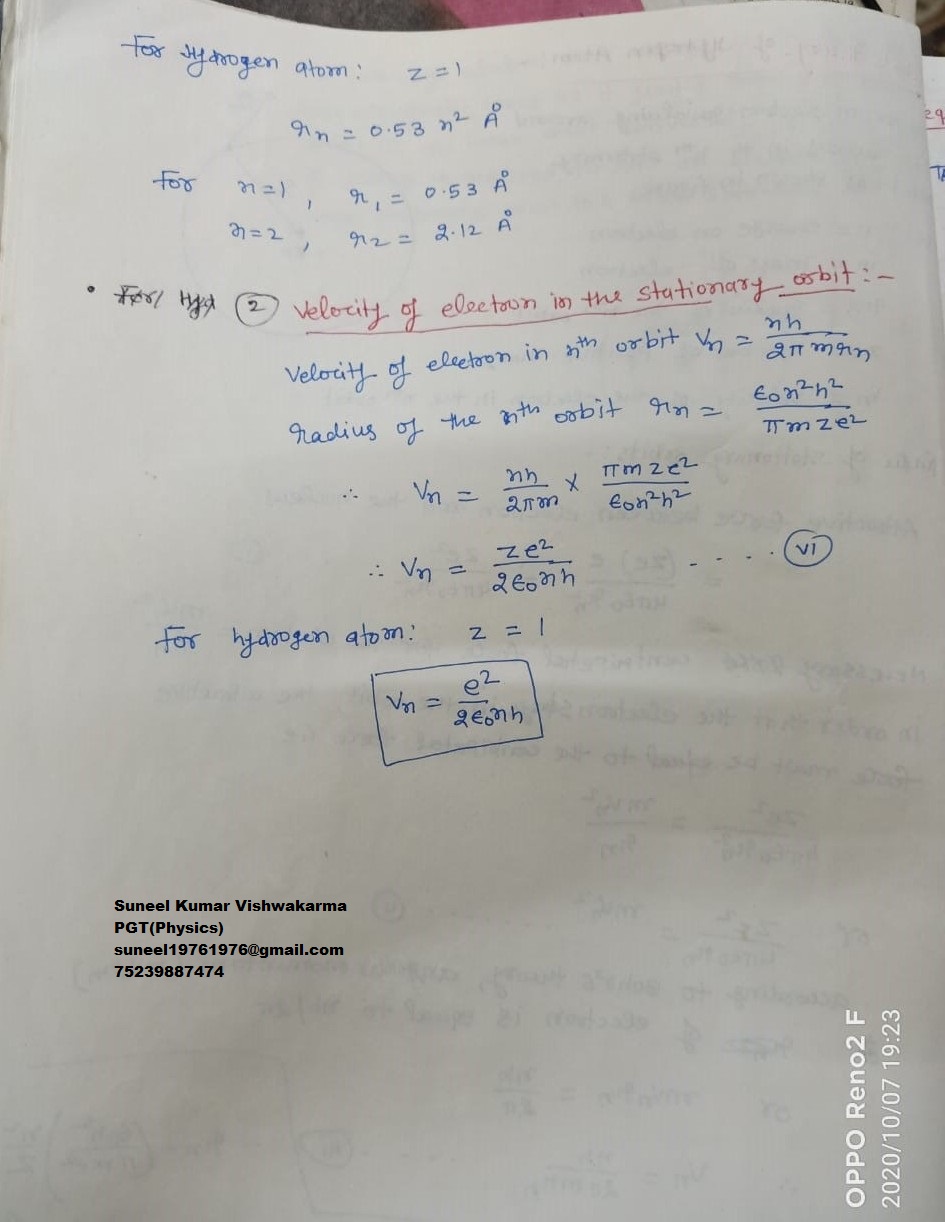 For Hydrogen atom: z = 1
rn = 0.53 n² Å
For n=1, r₁ = 0.53 Å
n=2, r₂ = 2.12 Å
• For Hyd ② Velocity of electron in the stationary orbit:-
Velocity of electron in nth orbit Vn = nh / 2πmrn
Radius of the nth orbit rn = ε₀n²h² / πmze²
∴ Vn = nh / 2πm × πmze² / ε₀n²h²
∴ Vn = ze² / 2ε₀nh - - . . . (VI)
For hydrogen atom: z = 1
Vn = e² / 2ε₀nh
Suneel Kumar Vishwakarma
PGT(Physics)
suneel19761976@gmail.com
75239887474
OPPO Reno2 F
2020/10/07 19:23